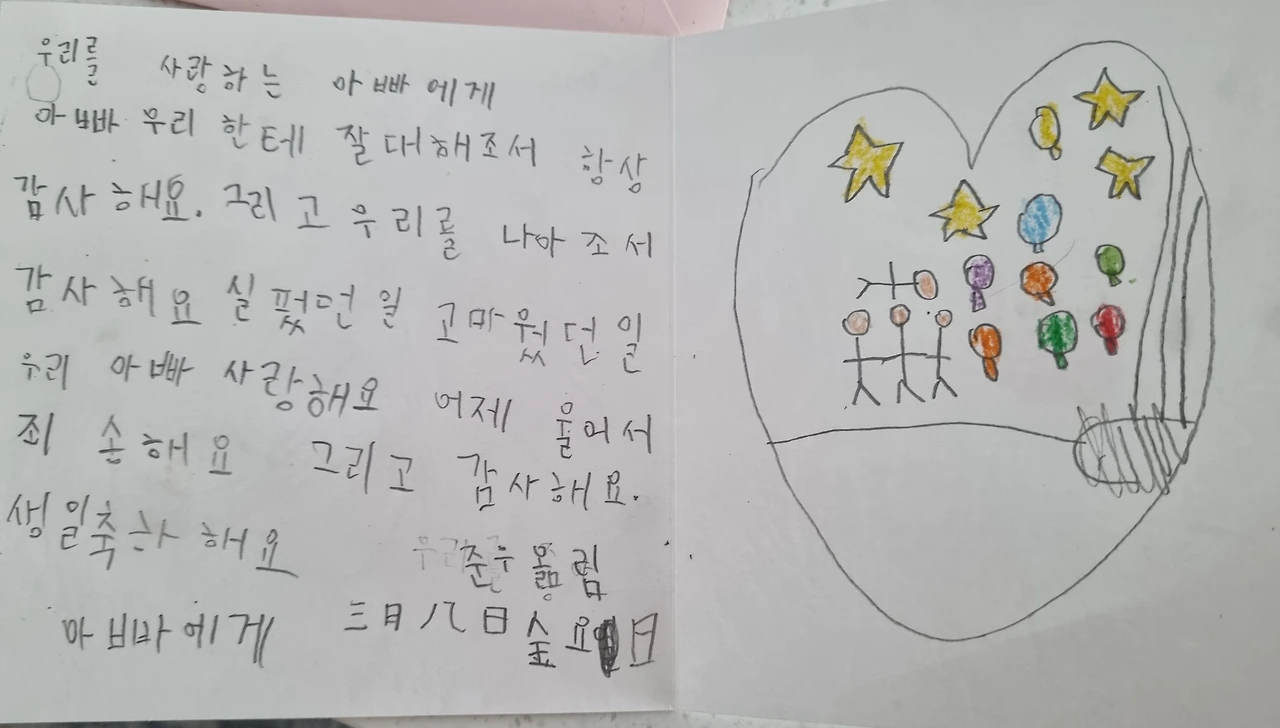 우리를 사랑하는 아빠에게
아빠 우리 한테 잘대해조서 항상
감사해요. 그리고 우리를 나아조서
감사해요 실펐던일 고마웠던일
우리 아빠 사랑해요 어제 울어서
죄손해요 그리고 감사해요.
생일축하해요
준우 올림
아빠에게 三月八日 金요日